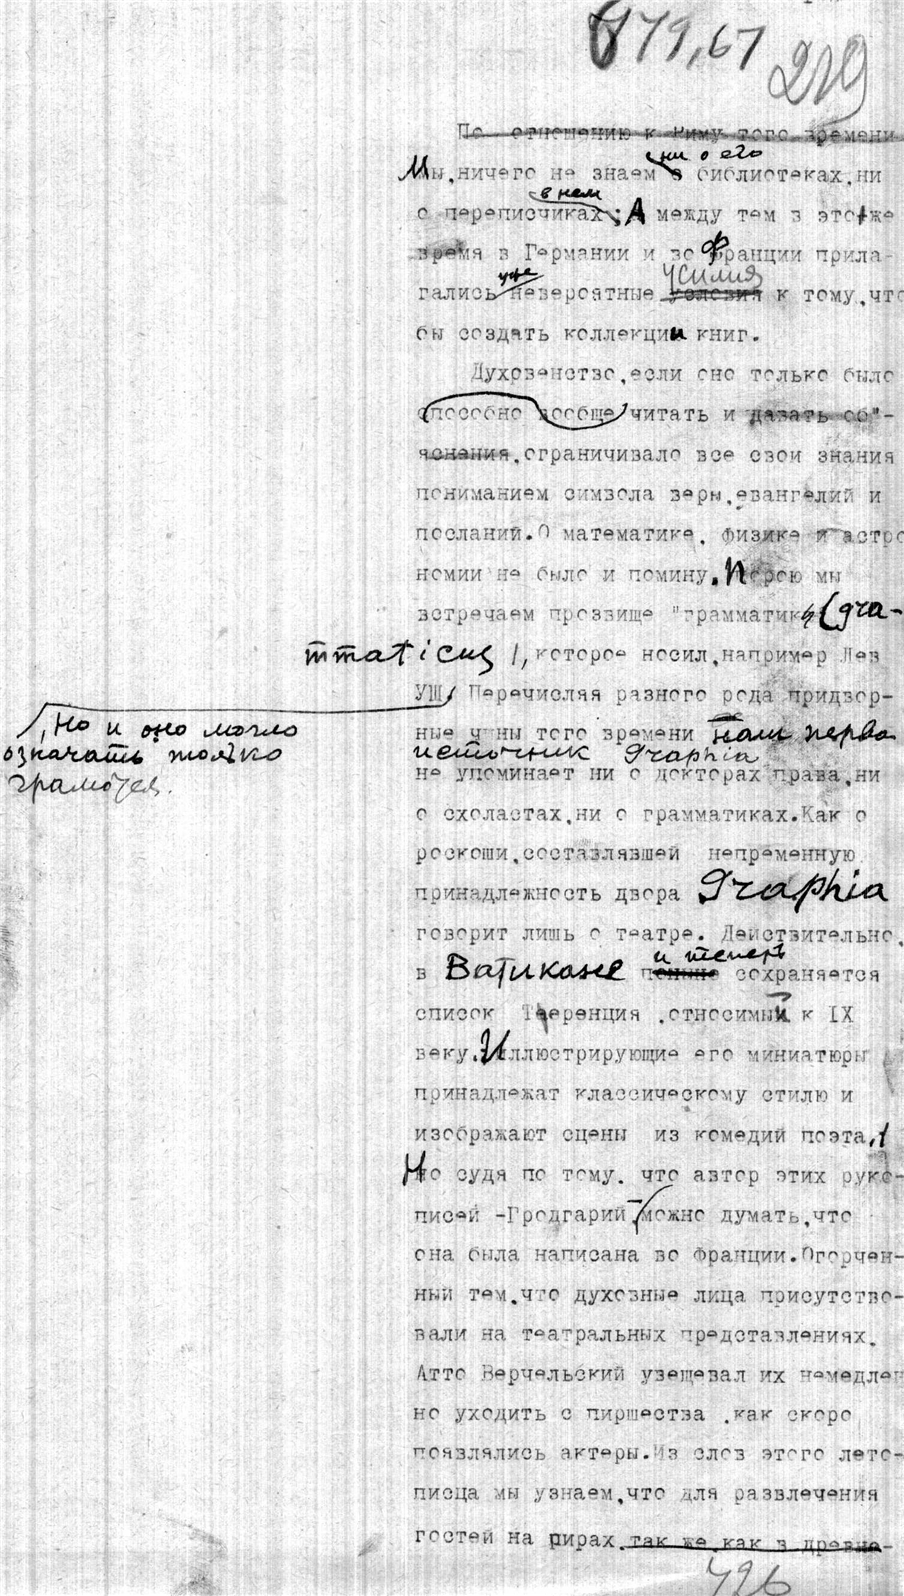 479,67
219
По отношению к Риму того времени
ни о его
Мы,ничего не знаем о библиотеках,ни
в нем
о переписчиках; А между тем в это же
время в Германии и во Франции прила-
уже усилия
гались невероятные условия к тому,что
бы создать коллекции книг.
Духовенство,если оно только было
способно вообще читать и давать об"-
яснения,ограничивало все свои знания
пониманием символа веры,евангелий и
посланий.О математике, физике и астро
номии не было и помину. Порою мы
встречаем прозвище "грамматик" (gra-
mmaticus), которое носил,например Лев
УШ. Перечисляя разного рода придвор-
, Но и оно могло
означать только
грамотея.
ные чины того времени наш перво
источник Graphia
не упоминает ни о докторах права,ни
о схоластах,ни о грамматиках.Как о
роскоши,составлявшей непременную
принадлежность двора Graphia
говорит лишь о театре. Действительно,
и теперь
в Ватикане сохраняется
список Теренция ,относимый к IX
веку. Иллюстрирующие его миниатюры
принадлежат классическому стилю и
изображают сцены из комедий поэта,
Но судя по тому, что автор этих руко-
писей -Гродгарий, можно думать,что
она была написана во Франции.Огорчен-
ный тем,что духовные лица присутство-
вали на театральных представлениях,
Атто Верчельский увещевал их немедлен
но уходить с пиршества ,как скоро
появлялись актеры.Из слов этого лето-
писца мы узнаем,что для развлечения
гостей на пирах,так же как в древне-
496